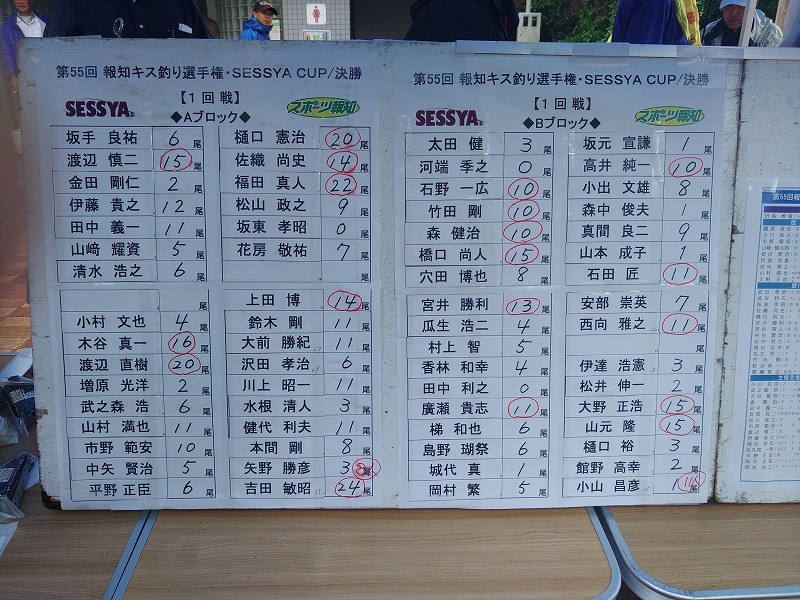 第55回 報知キス釣り選手権・SESSYA CUP/決勝
【1回戦】
SESSYA
◆Aブロック◆
スポーツ報知
坂手 良祐 6 尾
渡辺 慎二 15 尾
金田 剛仁 2 尾
伊藤 貴之 12 尾
田中 義一 11 尾
山﨑 耀資 5 尾
清水 浩之 6 尾
尾
小村 文也 4 尾
木谷 真一 16 尾
渡辺 直樹 20 尾
増原 光洋 2 尾
武之森 浩 6 尾
山村 満也 11 尾
市野 範安 10 尾
中矢 賢治 5 尾
平野 正臣 6 尾
樋口 憲治 20 尾
佐織 尚史 14 尾
福田 真人 22 尾
松山 政之 9 尾
坂東 孝昭 0 尾
花房 敬祐 7 尾
尾
上田 博 14 尾
鈴木 剛 11 尾
大前 勝紀 11 尾
沢田 孝治 6 尾
川上 昭一 11 尾
水根 清人 3 尾
健代 利夫 11 尾
本間 剛 8 尾
矢野 勝彦 38 尾
吉田 敏昭 24 尾
第55回 報知キス釣り選手権・SESSYA CUP/決勝
【1回戦】
SESSYA
◆Bブロック◆
スポーツ報知
太田 健 3 尾
河端 季之 0 尾
石野 一広 10 尾
竹田 剛 10 尾
森 健治 10 尾
橋口 尚人 15 尾
穴田 博也 8 尾
宮井 勝利 13 尾
瓜生 浩二 4 尾
村上 智 5 尾
香林 和幸 4 尾
田中 利之 0 尾
廣瀬 貴志 11 尾
梯 和也 6 尾
島野 瑚祭 6 尾
城代 真 1 尾
岡村 繁 5 尾
坂元 宣謙 1 尾
高井 純一 10 尾
小出 文雄 8 尾
森中 俊夫 1 尾
真間 良二 9 尾
山本 成子 1 尾
石田 匠 11 尾
安部 崇英 7 尾
西向 雅之 11 尾
尾
伊達 浩憲 3 尾
松井 伸一 2 尾
大野 正浩 15 尾
山元 隆 15 尾
樋口 裕 3 尾
館野 高幸 2 尾
小山 昌彦 14 尾
第55回報